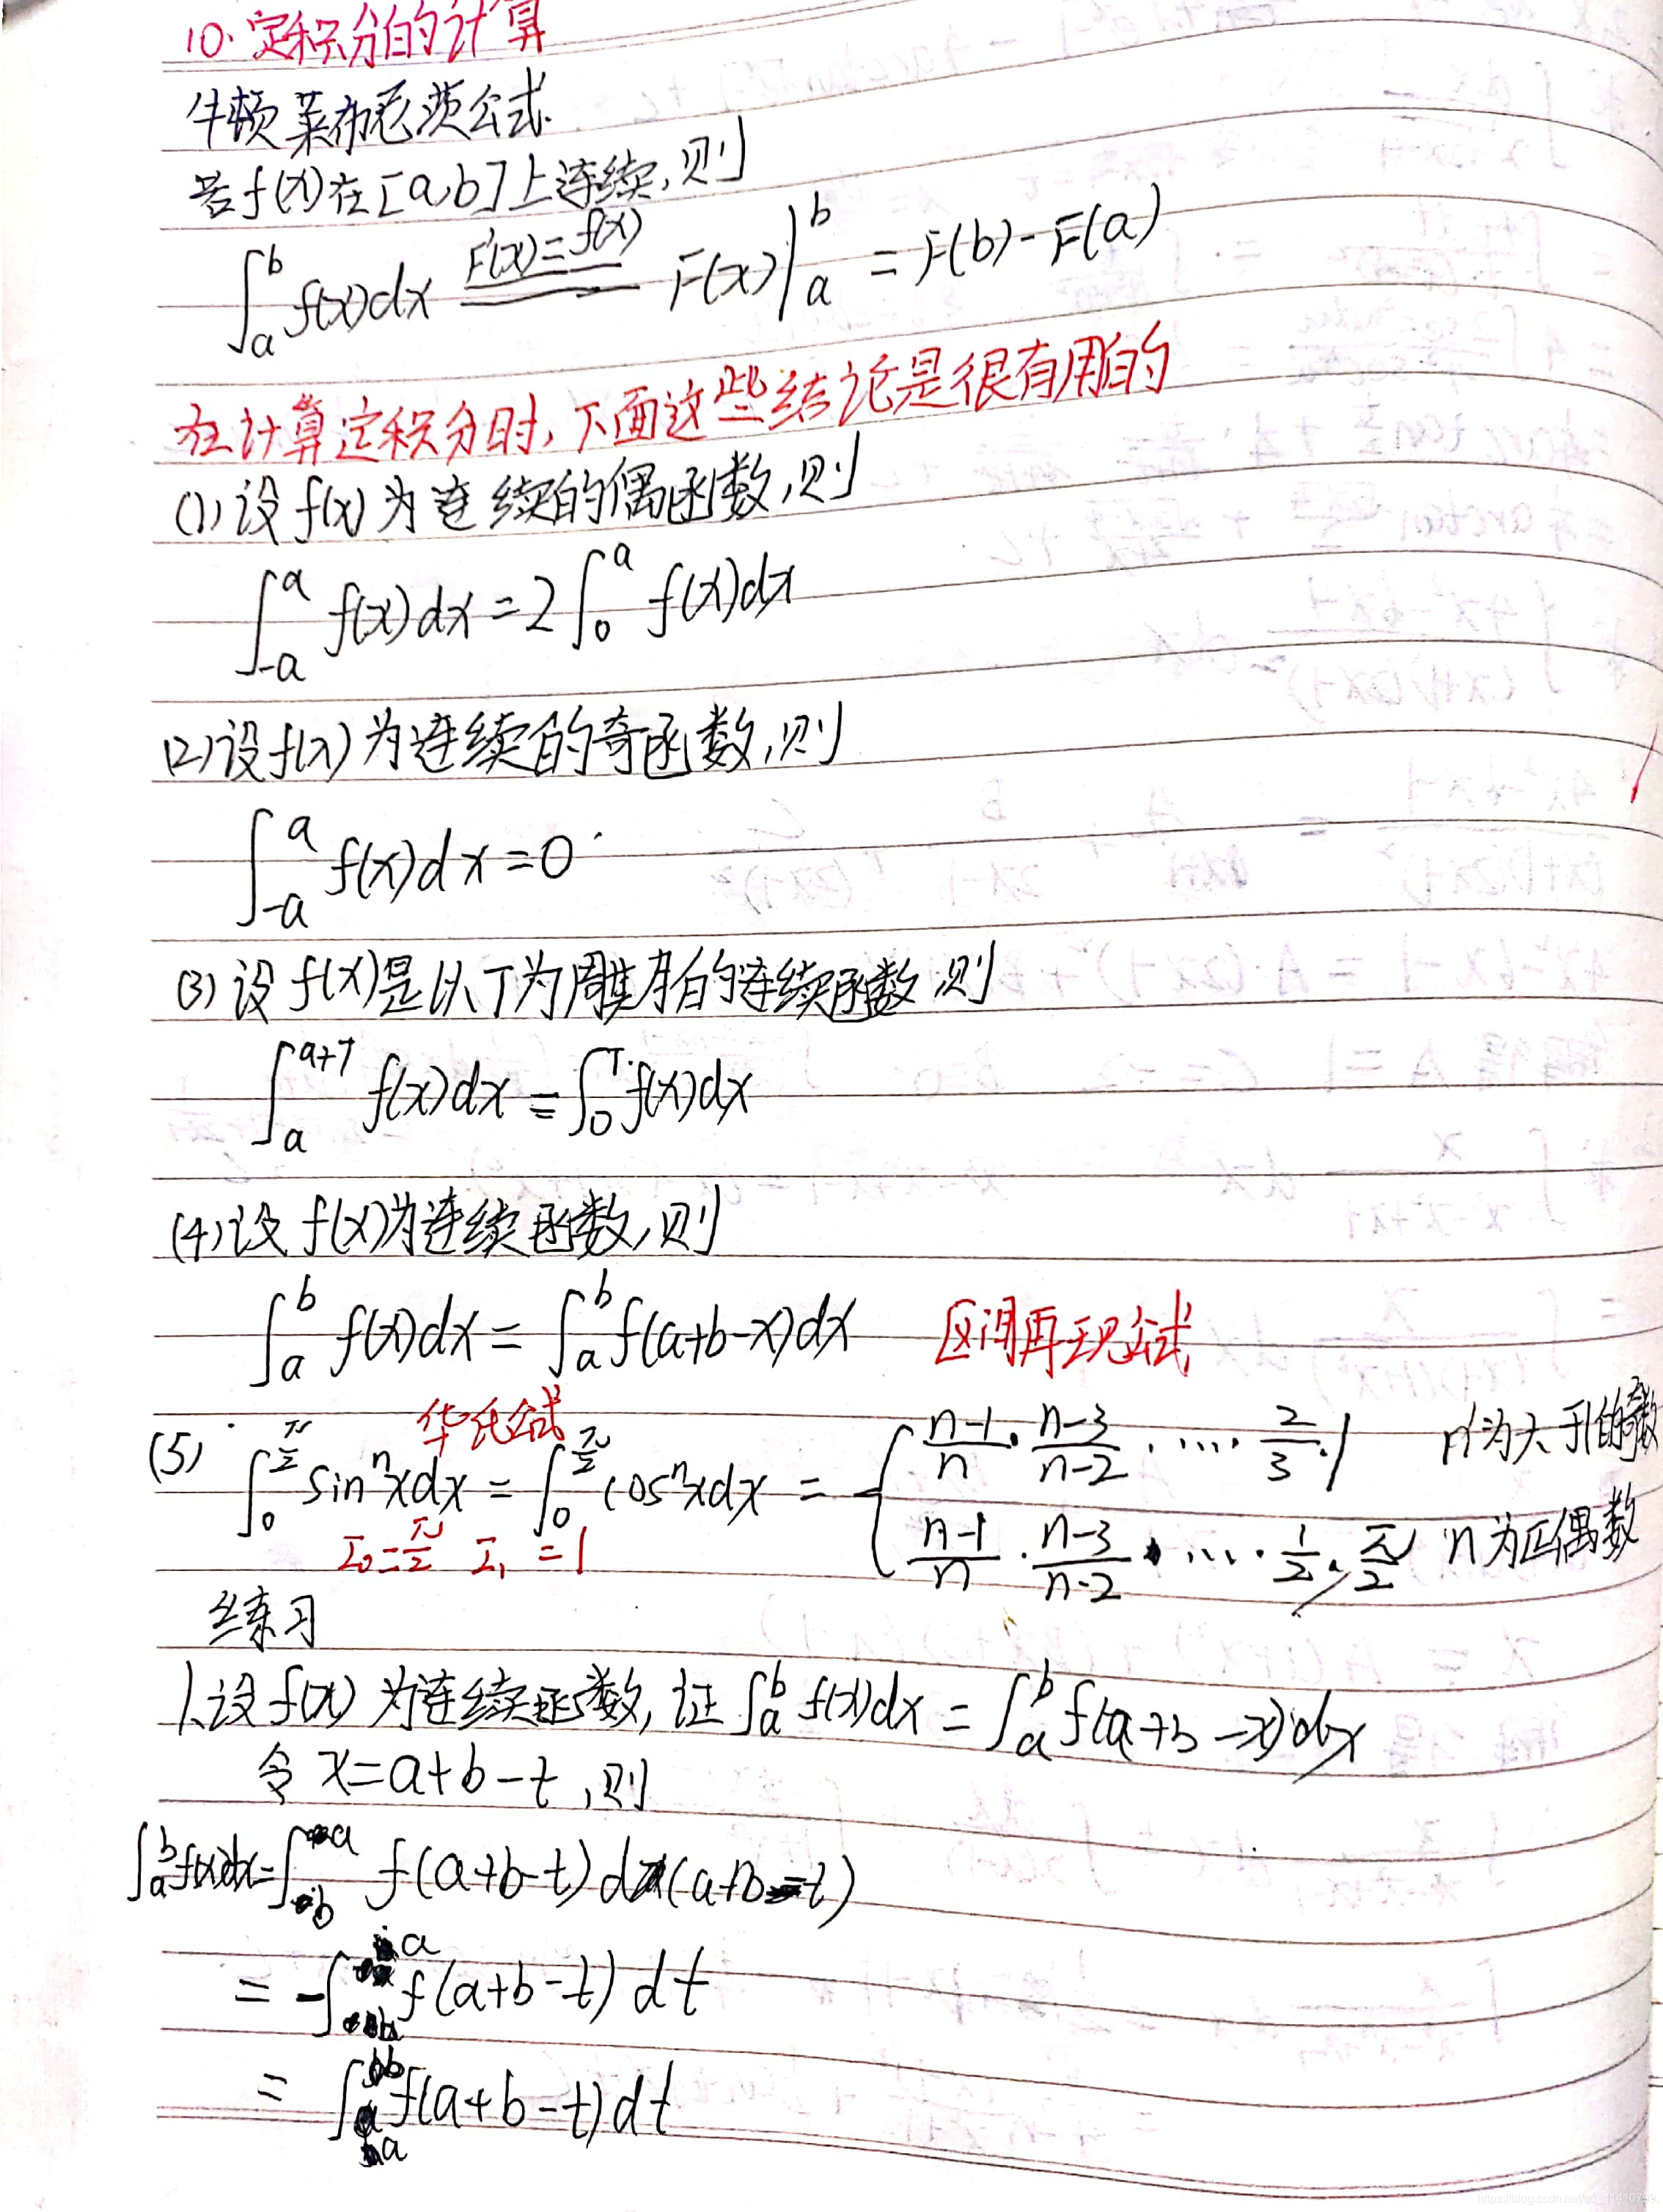 10.定积分的计算
牛顿莱布尼茨公式.
若f(x)在[a,b]上连续,则
∫_a^b f(x)dx =(F'(x)=f(x))= F(x)|_a^b = F(b)-F(a)
在计算定积分时,下面这些结论是很有用的
(1)设f(x)为连续的偶函数,则
∫_{-a}^a f(x)dx=2∫_0^a f(x)dx
(2)设f(x)为连续的奇函数,则
∫_{-a}^a f(x)dx=0
(3)设f(x)是以T为周期的连续函数,则
∫_a^{a+T} f(x)dx=∫_0^T f(x)dx
(4)设f(x)为连续函数,则
∫_a^b f(x)dx=∫_a^b f(a+b-x)dx 区间再现公式
华氏公式
(5) ∫_0^{π/2} sin^n xdx=∫_0^{π/2} cos^n xdx= { (n-1)/n·(n-3)/(n-2)·····2/3·1 n为大于1的奇数
(n-1)/n·(n-3)/(n-2)·····1/2·π/2 n为正偶数
I_0=π/2 I_1=1
练习
1.设f(x)为连续函数,证∫_a^b f(x)dx=∫_a^b f(a+b-x)dx
令x=a+b-t,则
∫_a^b f(x)dx=∫_b^a f(a+b-t)d(a+b-t)
=-∫_b^a f(a+b-t)dt
=∫_a^b f(a+b-t)dt